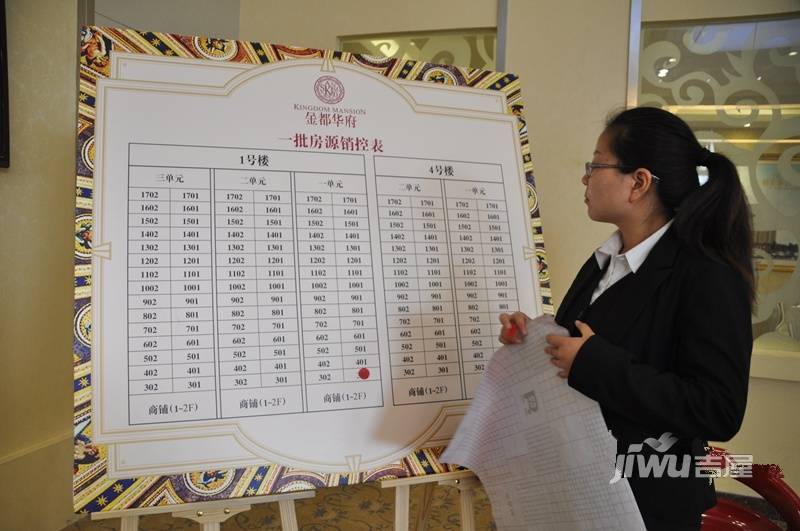 KINGDOM MANSION
金都华府
一批房源销控表
1号楼 4号楼
三单元 二单元 一单元 二单元 一单元
1702 1701 1702 1701 1702 1701 1702 1701 1702 1701
1602 1601 1602 1601 1602 1601 1602 1601 1602 1601
1502 1501 1502 1501 1502 1501 1502 1501 1502 1501
1402 1401 1402 1401 1402 1401 1402 1401 1402 1401
1302 1301 1302 1301 1302 1301 1302 1301 1302 1301
1202 1201 1202 1201 1202 1201 1202 1201 1202 1201
1102 1101 1102 1101 1102 1101 1102 1101 1102 1101
1002 1001 1002 1001 1002 1001 1002 1001 1002 1001
902 901 902 901 902 901 902 901 902 901
802 801 802 801 802 801 802 801 802 801
702 701 702 701 702 701 702 701 702
602 601 602 601 602 601 602 601 602
502 501 502 501 502 501 502 501 502
402 401 402 401 402 401 402 401 402
302 301 302 301 302 302 301
商铺(1-2F) 商铺(1-2F) 商铺(1-2F) 商铺(1-2F)
JIWU吉屋